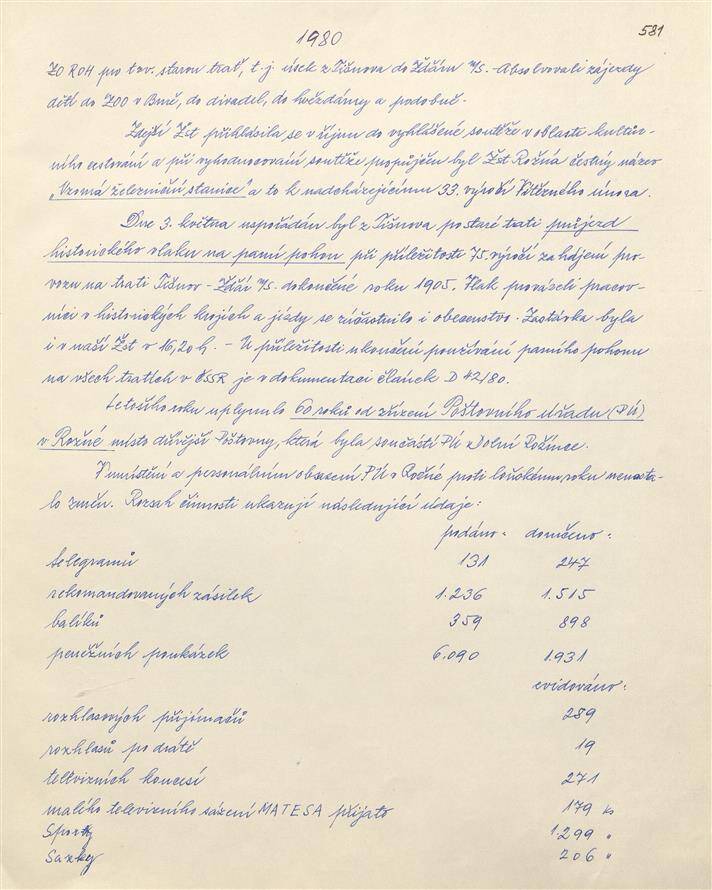 1980
581
ZO ROH pro tzv. starou trať, t.j. úsek z Tišnova do Žďáru n/S. - Absolvovali zájezdy
dětí do ZOO v Brně, do divadel, do hvězdárny a podobně.
Zdejší Žst přihlásila se v říjnu do vyhlášené soutěže v oblasti kultúr-
ního cestování a při vyhodnocování soutěže propůjčen byl Žst Rožná čestný název
„Vzorná železniční stanice" a to k nadcházejícímu 33. výročí Vítězného února.
Dne 3. května uspořádán byl z Tišnova po staré trati průjezd
historického vlaku na parní pohon při příležitosti 75. výročí zahájení pro-
vozu na trati Tišnov - Žďár n/S. dokončené roku 1905. Vlak provázeli pracov-
níci v historických krojích a jízdy se zúčastnilo i obecenstvo. Zastávka byla
i v naší Žst v 16,20 h. - U příležitosti ukončení používání parního pohonu
na všech tratích v ČSSR je v dokumentaci článek D 42/80.
Letošího roku uplynulo 60 roků od zřízení Poštovního úřadu (PÚ)
v Rožné místo dřívější Poštovny, která byla součástí PÚ v Dolní Rožínce.
V umístění a personálním obsazení PÚ v Rožné proti loňskému roku nenasta-
lo změn. Rozsah činnosti ukazují následující údaje:
podáno: doručeno:
telegramů 131 247
rekomandovaných zásilek 1.236 1.515
balíků 359 898
peněžních poukázek 6.090 1.931
evidováno:
rozhlasových přijímačů 289
rozhlasů po drátě 19
televizních koncesí 271
malého televizního sázení MATESA přijato 179 ks
Sportky 1.299 "
Sazky 206 "